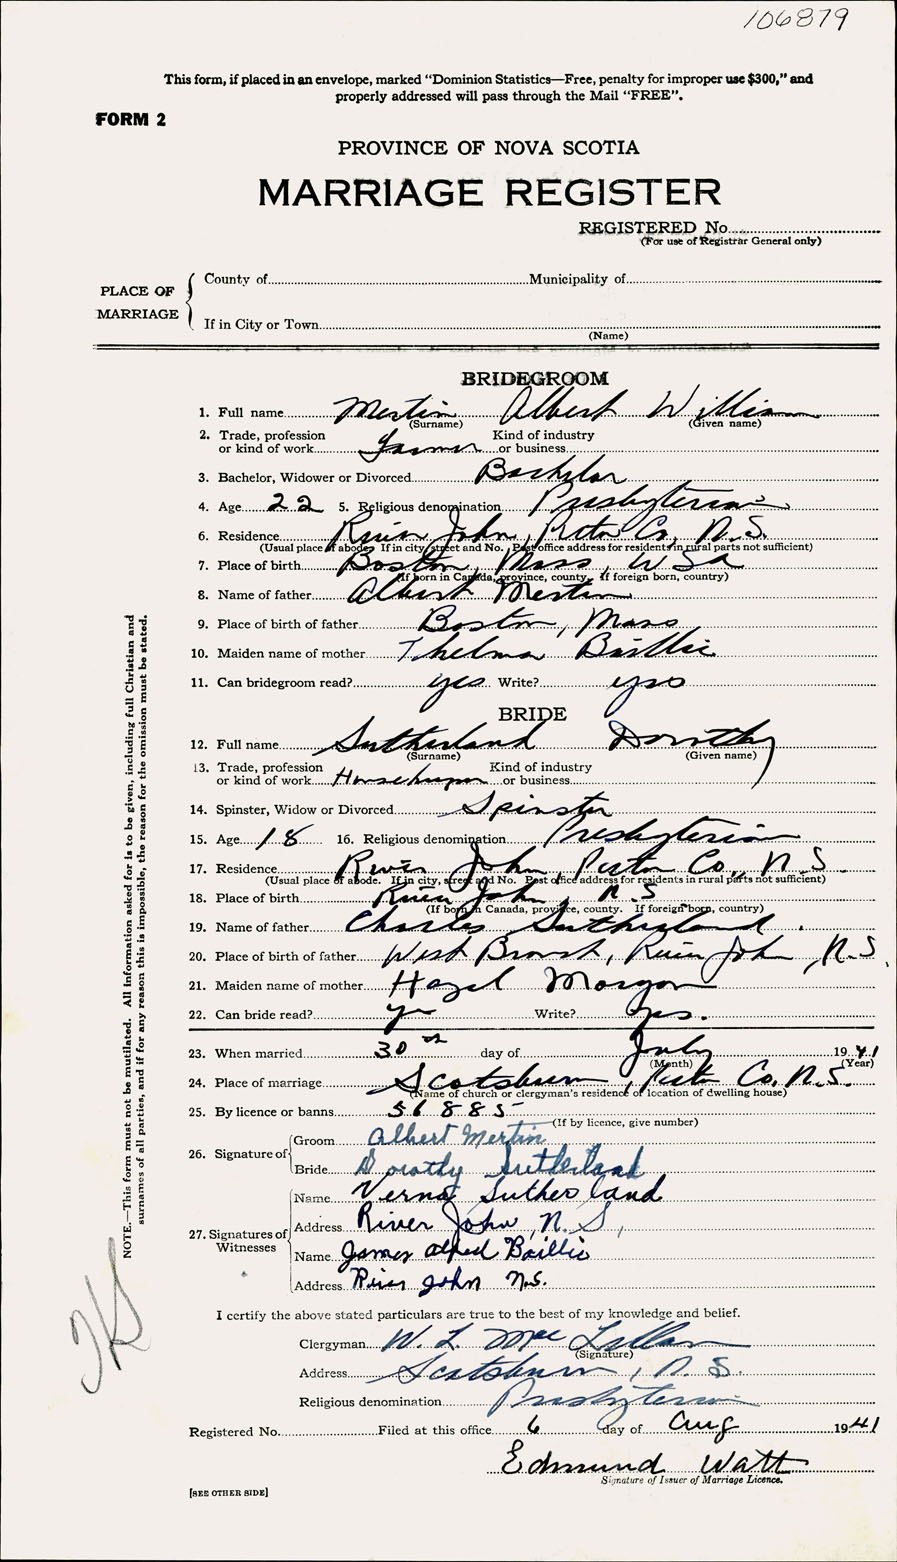 106879
This form, if placed in an envelope, marked “Dominion Statistics—Free, penalty for improper use $300,” and
properly addressed will pass through the Mail “FREE”.
FORM 2
PROVINCE OF NOVA SCOTIA
MARRIAGE REGISTER
REGISTERED No.
(For use of Registrar General only)
PLACE OF MARRIAGE
County of Municipality of
If in City or Town
(Name)
BRIDEGROOM
1. Full name Mertin Albert William
(Surname) (Given name)
2. Trade, profession or kind of work Farmer Kind of industry or business
3. Bachelor, Widower or Divorced Bachelor
4. Age 22 5. Religious denomination Presbyterian
6. Residence River John, Pictou Co, N.S.
(Usual place of abode. If in city, street and No. Post office address for residents in rural parts not sufficient)
7. Place of birth Boston, Mass, USA
(If born in Canada, province, county. If foreign born, country)
8. Name of father Albert Mertin
9. Place of birth of father Boston, Mass
10. Maiden name of mother Thelma Baillie
11. Can bridegroom read? yes Write? yes
BRIDE
12. Full name Sutherland Dorothy
(Surname) (Given name)
13. Trade, profession or kind of work Housekeeper Kind of industry or business
14. Spinster, Widow or Divorced Spinster
15. Age 18 16. Religious denomination Presbyterian
17. Residence River John, Pictou Co., N S
(Usual place of abode. If in city, street and No. Post office address for residents in rural parts not sufficient)
18. Place of birth River John, N.S
(If born in Canada, province, county. If foreign born, country)
19. Name of father Charles Sutherland.
20. Place of birth of father West Branch, River John, N.S.
21. Maiden name of mother Hazel Morgan
22. Can bride read? yes Write? yes.
23. When married 30th day of July 1941
(Month) (Year)
24. Place of marriage Scotsburn, Pictou Co. N.S.
(Name of church or clergyman's residence or location of dwelling house)
25. By licence or banns 56885
(If by licence, give number)
26. Signature of Groom Albert Mertin
Bride Dorothy Sutherland
27. Signatures of Witnesses Name Verna Sutherland
Address River John, N. S,
Name James Alfred Baillie
Address River John N.S.
I certify the above stated particulars are true to the best of my knowledge and belief.
Clergyman W. L. Mac Lellan
(Signature)
Address Scotsburn, N. S.
Religious denomination Presbyterian
Registered No. Filed at this office 6 day of Aug 1941
Edmund Watt
Signature of Issuer of Marriage Licence.
[SEE OTHER SIDE]
NOTE.—This form must not be mutilated. All information asked for is to be given, including full Christian and
surnames of all parties, and if for any reason this is impossible, the reason for the omission must be stated.